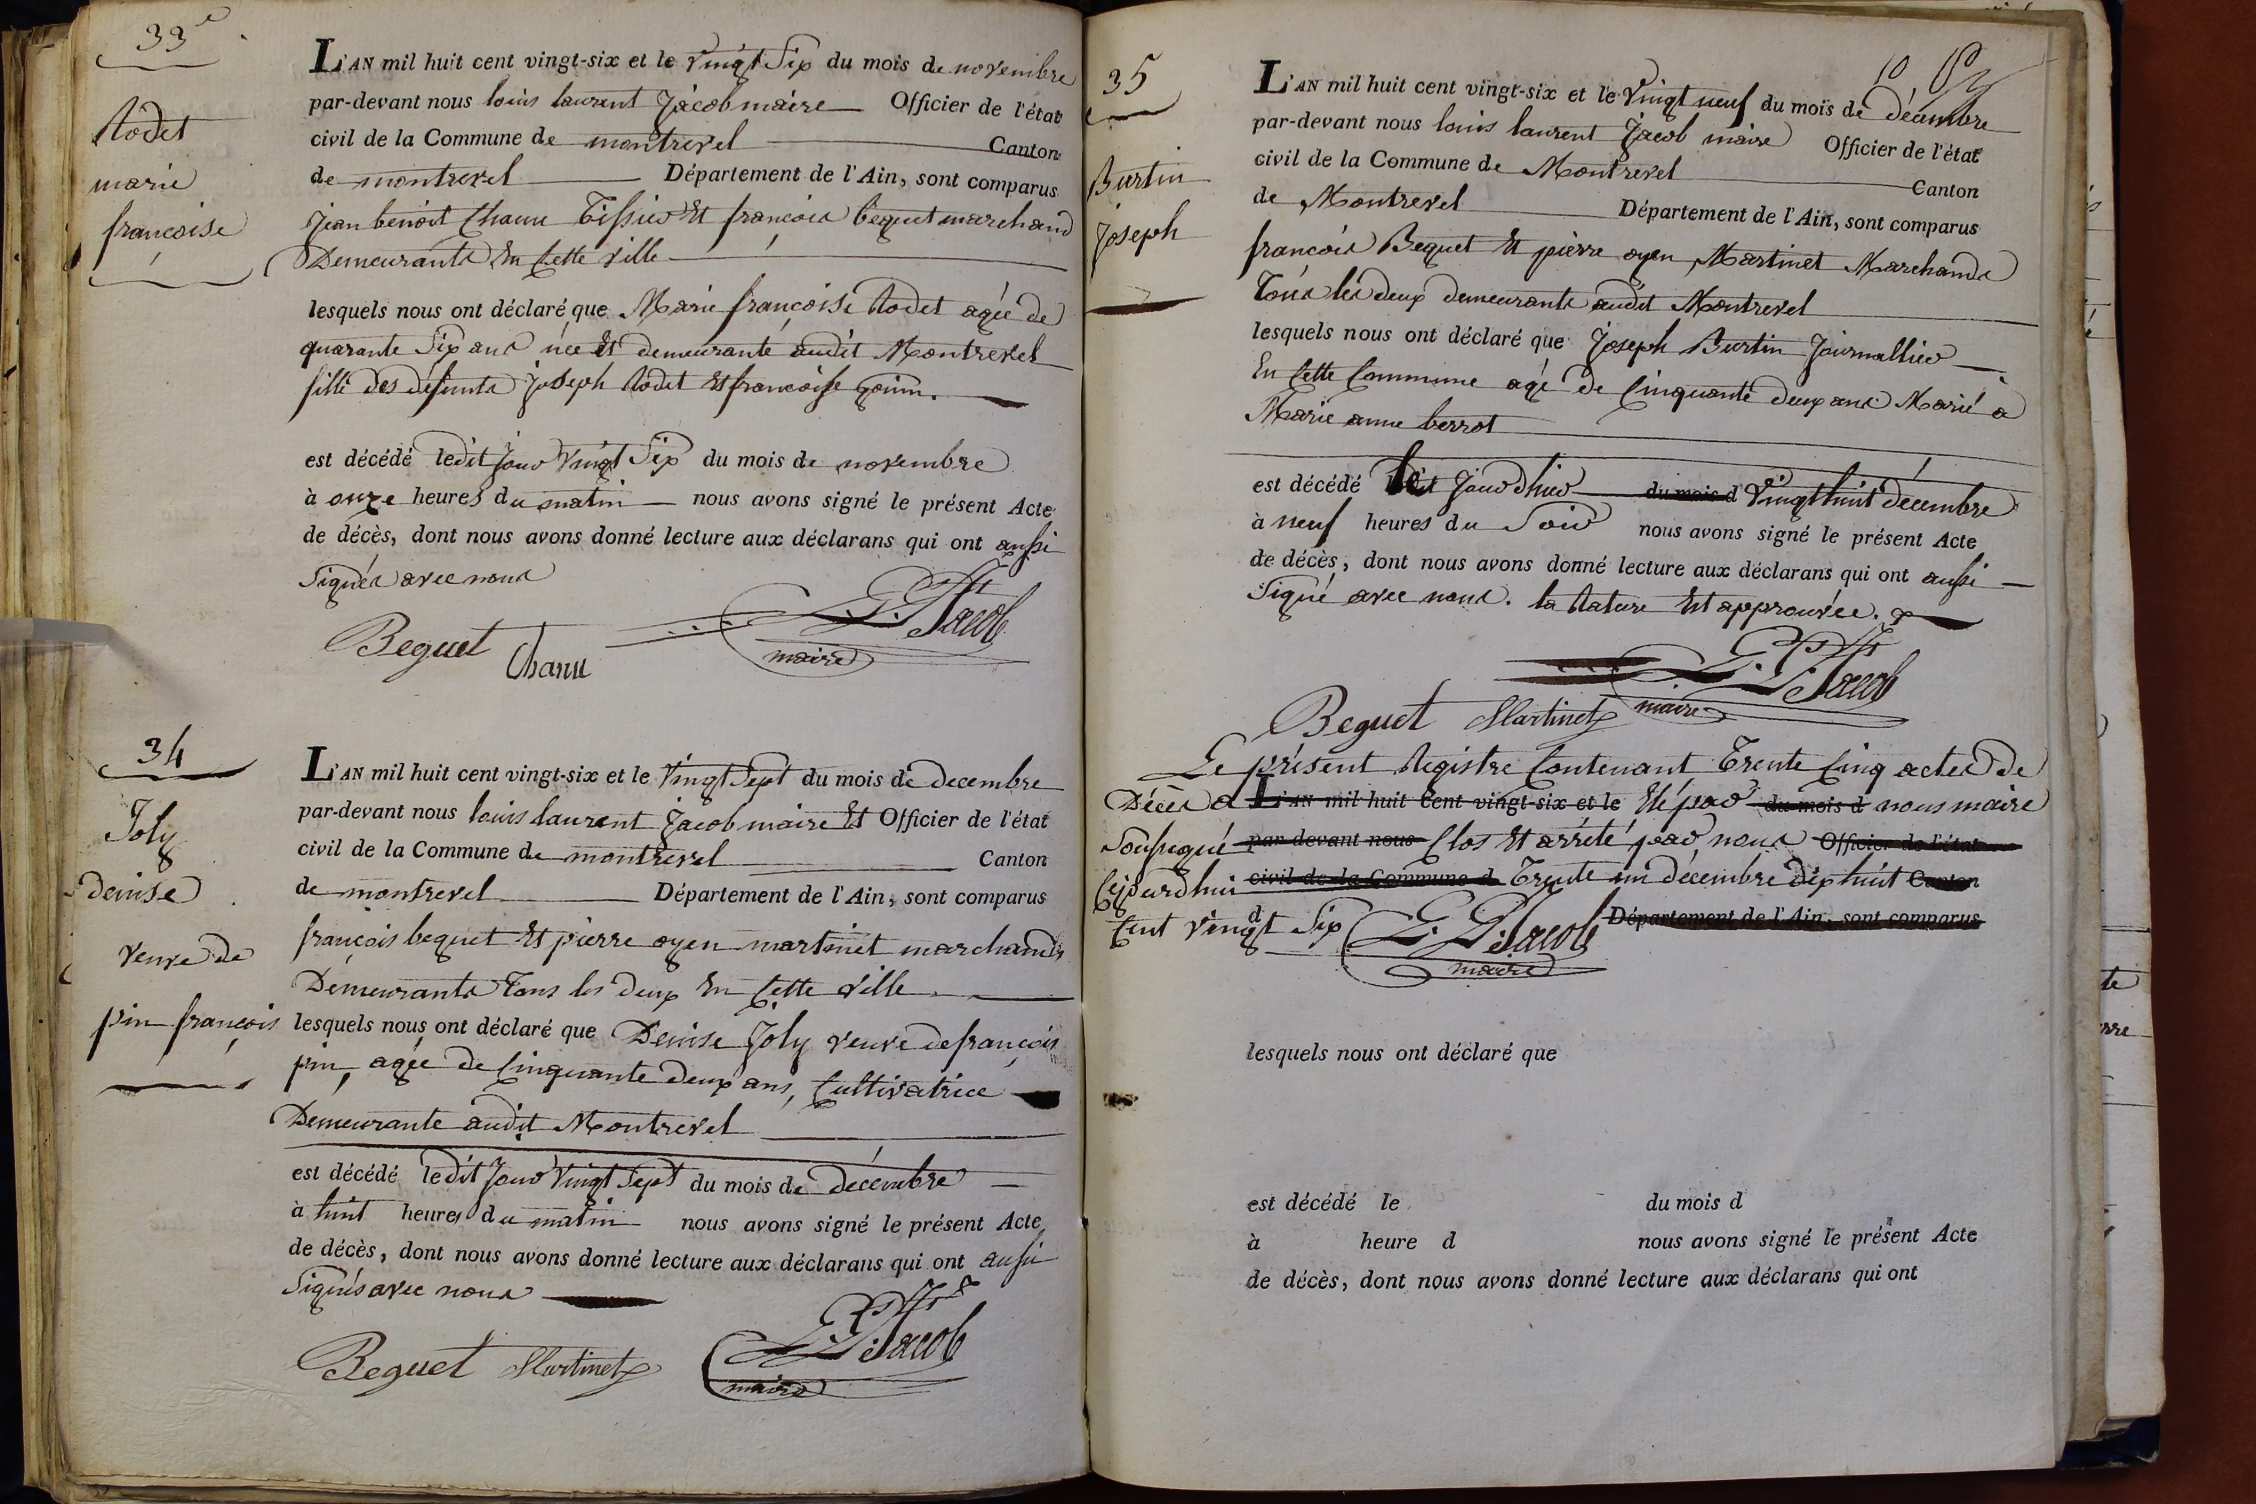 33e
Rodet
marie
francoise
L'AN mil huit cent vingt-six et le vingt Six du mois de novembre
par-devant nous louis laurent Jacob maire Officier de l'état
civil de la Commune de montrevel Canton
de montrevel Département de l'Ain, sont comparus
Jean benoit Chanu Tissier Et françois bequet marchand
Demeurants En Cette ville
lesquels nous ont déclaré que Marie françoise Rodet agée de
quarante Six ans née Et demeurante audit Montrevel
fille des défunts Joseph Rodet Et francoise
est décédé ledit Jour vingt Six du mois de novembre
à onze heures du matin nous avons signé le présent Acte
de décès, dont nous avons donné lecture aux déclarans qui ont aussi
Signés avec nous
Beguet Chanu Jacob
maire
34
Joly
denise
veuve de
pin françois
L'AN mil huit cent vingt-six et le vingt Sept du mois de decembre
par-devant nous louis laurent Jacob maire Et Officier de l'état
civil de la Commune de montrevel Canton
de montrevel Département de l'Ain, sont comparus
françois bequet Et pierre oyen martinet marchands
Demeurants Tous les deux En Cette ville
lesquels nous ont déclaré que Denise Joly veuve de françois
pin, agée de Cinquante deux ans, Cultivatrice
Demeurante audit Montrevel
est décédé ledit Jour vingt Sept du mois de décembre
à huit heures du matin nous avons signé le présent Acte
de décès, dont nous avons donné lecture aux déclarans qui ont aussi
Signés avec nous
Beguet Martinet Jacob
maire
10
35
Burtin
Joseph
L'AN mil huit cent vingt-six et le vingt neuf du mois de décembre
par-devant nous louis laurent Jacob maire Officier de l'état
civil de la Commune de Montrevel Canton
de Montrevel Département de l'Ain, sont comparus
françois Bequet Et pierre oyen Martinet Marchands
Tous les deux demeurants audit Montrevel
lesquels nous ont déclaré que Joseph Burtin Journallier
En Cette Commune agé de Cinquante deux ans Marié a
Marie anne berrot
est décédé le Jour d'hier du mois d vingt huit décembre
à neuf heures du Soir nous avons signé le présent Acte
de décès, dont nous avons donné lecture aux déclarans qui ont aussi
Signé avec nous. la Rature Est approuvée.
Jacob
Beguet Martinet maire
Le présent Registre Contenant Trente Cinq actes de
Décès a L'AN mil huit cent vingt-six et le Eté par du mois d nous maire
Soussigné par-devant nous Clos Et arrêté par nous Officier de l'état
Cejourdhui civil de la Commune d Trente un décembre dix huit Canton
Cent vingt Six d Jacob Département de l'Ain, sont comparus
maire
lesquels nous ont déclaré que
est décédé le du mois d
à heure d nous avons signé le présent Acte
de décès, dont nous avons donné lecture aux déclarans qui ont